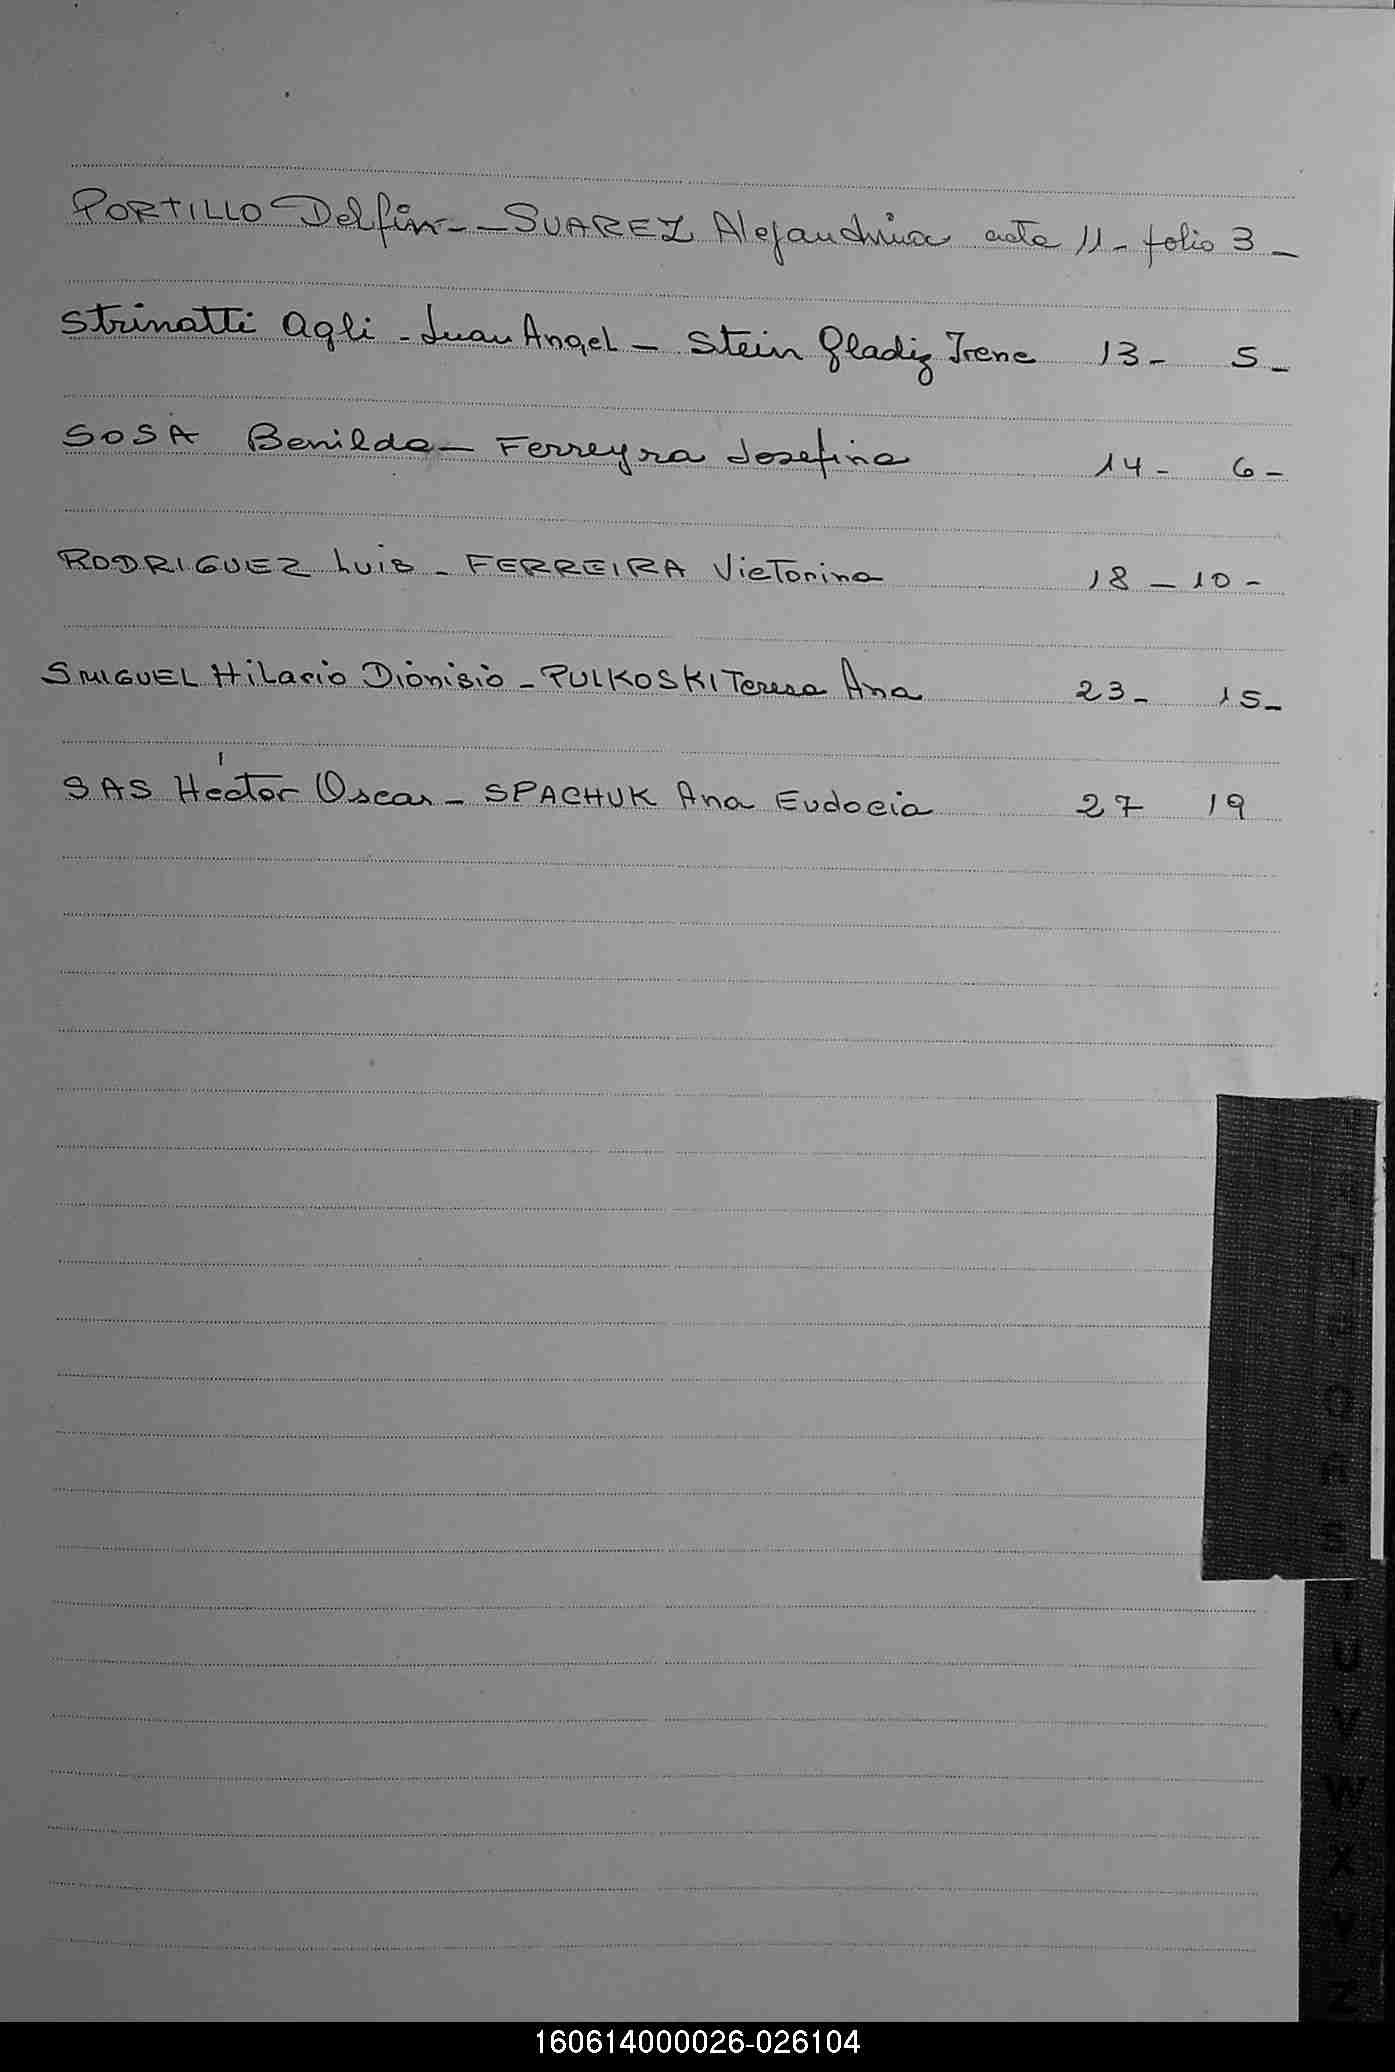 PORTILLO Delfin - - SUAREZ Alejandrina acta 11 - folio 3 -
Strinatti Agli - Juan Angel - Stein Gladiz Irene 13 - 5 -
SOSA Benilda - Ferreyra Josefina 14 - 6 -
RODRIGUEZ Luis - FERREIRA Victorina 18 - 10 -
SMIGUEL Hilario Dionisio - PULKOSKI Teresa Ana 23 - 15 -
SAS Héctor Oscar - SPACHUK Ana Eudocia 27 19
Q
R
S
U
V
W
X
Y
Z
160614000026-026104